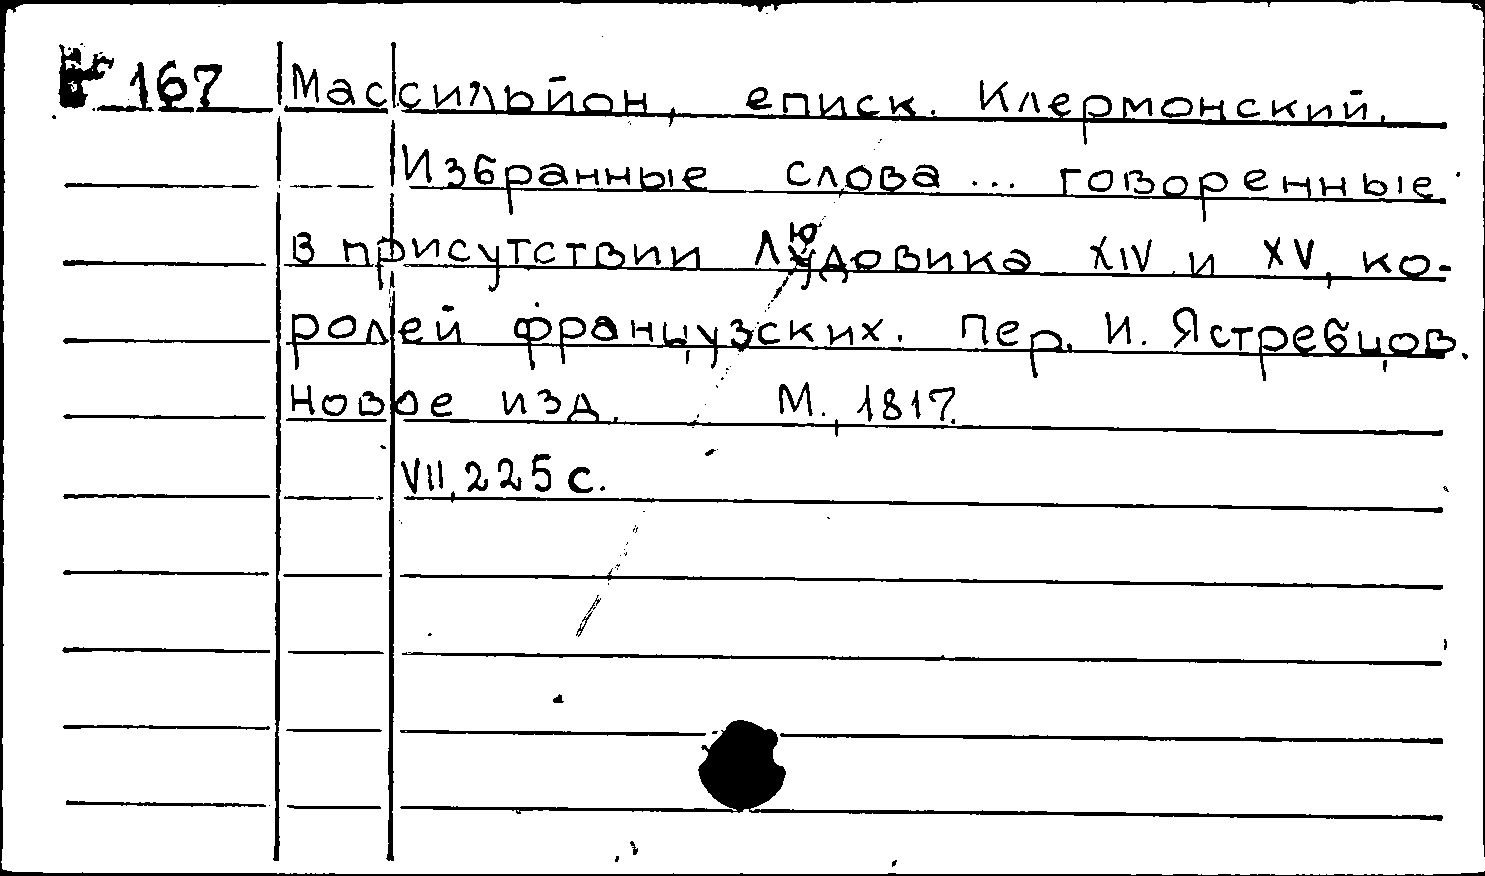 167 Массильйон, еписк. Клермонский.
Избранные слова ... говоренные
в присутствии Людовика XIV и XV, ко-
ролей французских. Пер. И. Ястребцов.
Новое изд. М., 1817.
VII, 225 с.